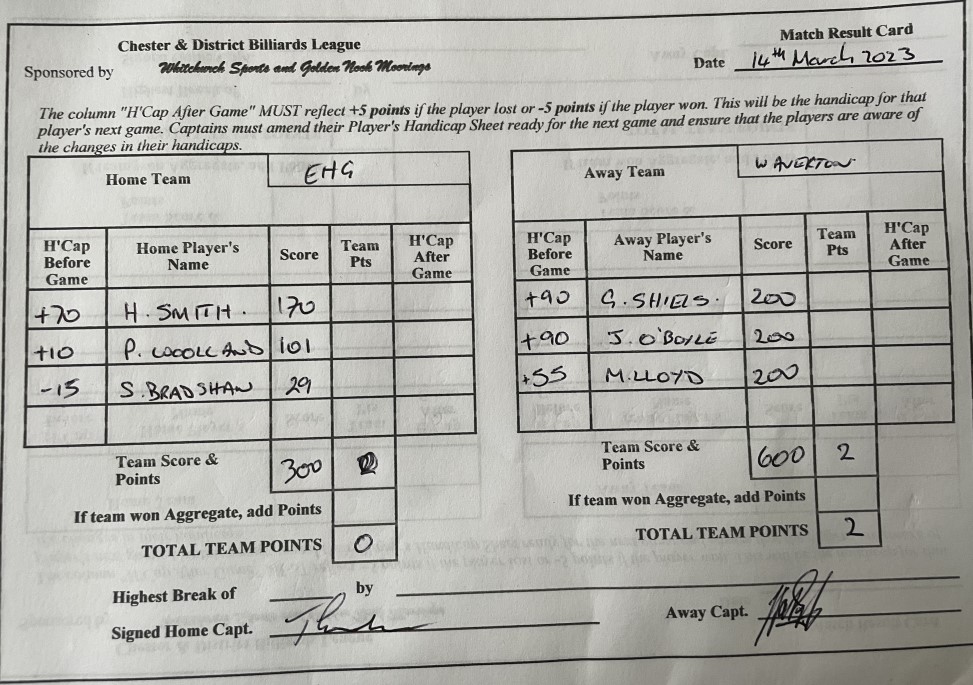 Chester & District Billiards League
Match Result Card
Sponsored by Whitchurch Sports and Golden Nook Moorings
Date 14TH March 2023
The column "H'Cap After Game" MUST reflect +5 points if the player lost or -5 points if the player won. This will be the handicap for that
player's next game. Captains must amend their Player's Handicap Sheet ready for the next game and ensure that the players are aware of
the changes in their handicaps.
Home Team EHG
H'Cap Before Game Home Player's Name Score Team Pts H'Cap After Game
+70 H. SMITH. 170
+10 P. WOOLLAND 101
-15 S. BRADSHAW 29
Team Score & Points 300
If team won Aggregate, add Points
TOTAL TEAM POINTS 0
Away Team WAVERTON
H'Cap Before Game Away Player's Name Score Team Pts H'Cap After Game
+90 G. SHIELS. 200
+90 J. O'BOYLE 200
+55 M. LLOYD 200
Team Score & Points 600 2
If team won Aggregate, add Points
TOTAL TEAM POINTS 2
Highest Break of by
Signed Home Capt.
Away Capt.